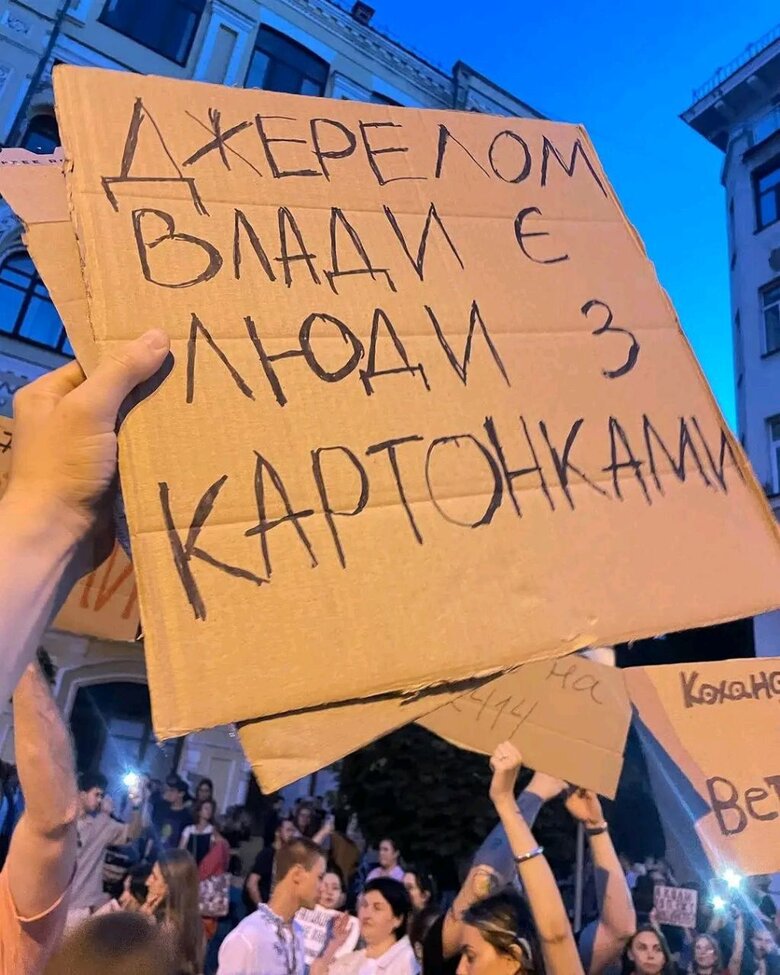 ДЖЕРЕЛОМ
ВЛАДИ Є
ЛЮДИ З
КАРТОНКАМИ
на
2414